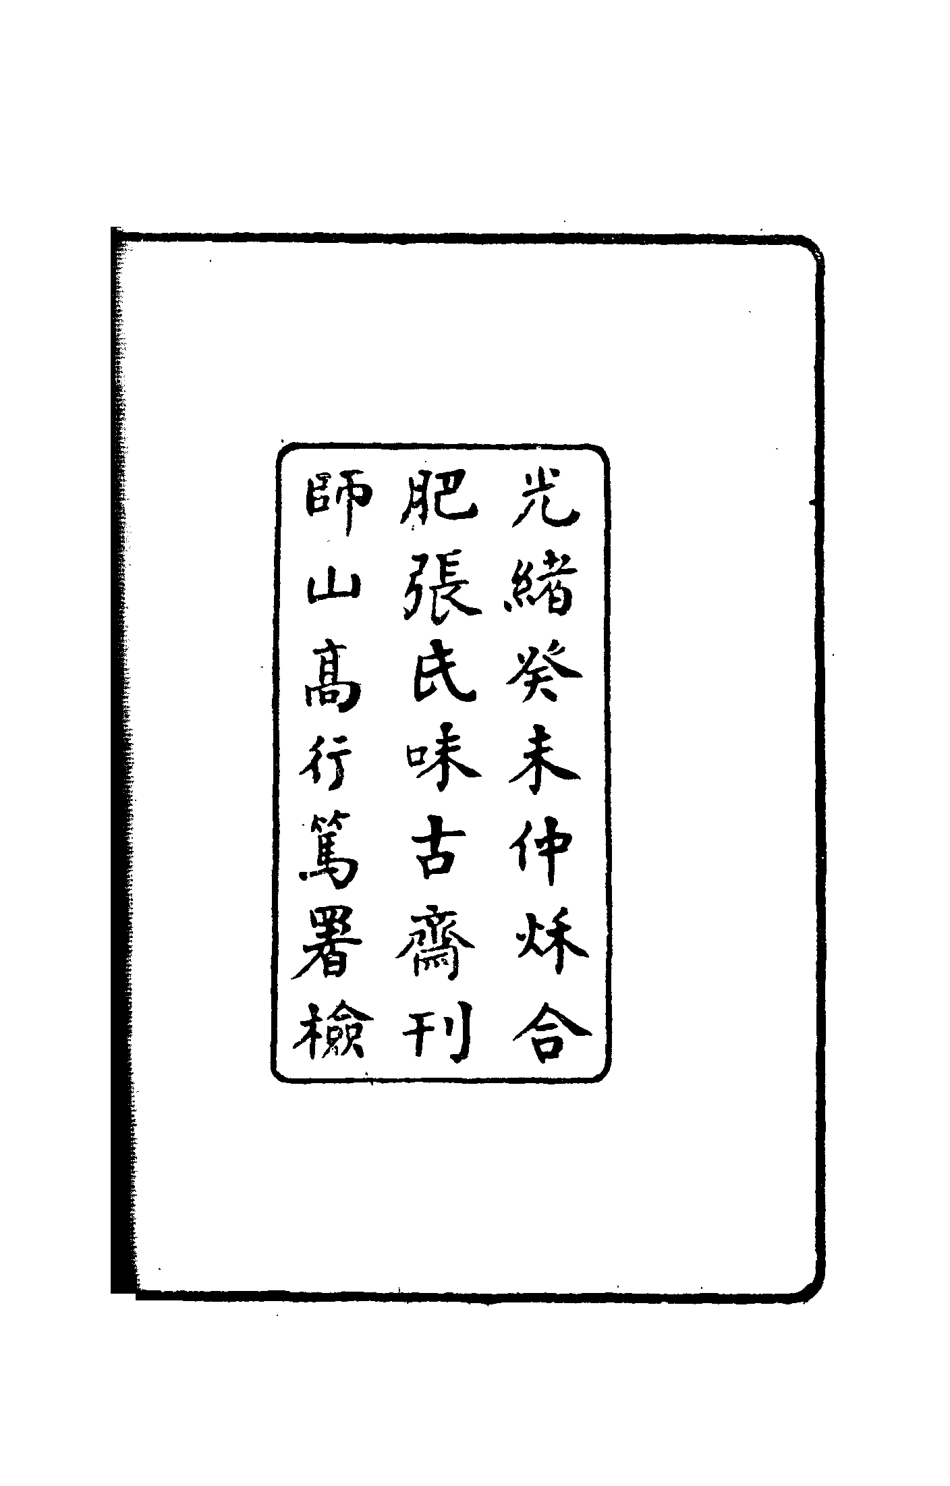 光緒癸未仲秌合
肥張氏味古齋刊
師山高行篤署檢